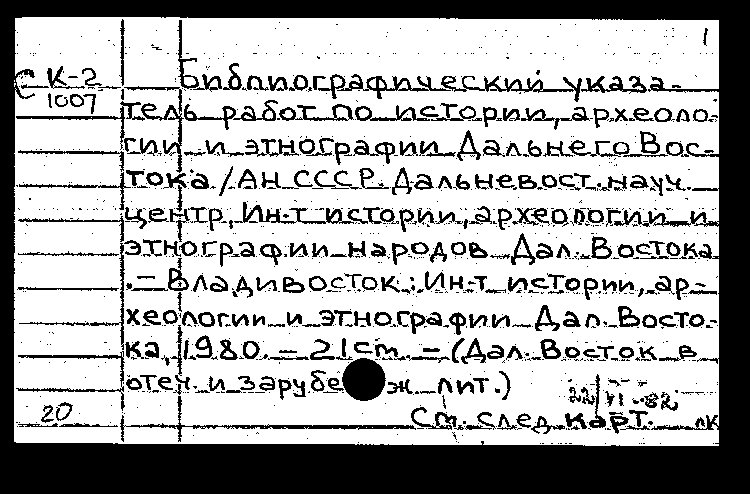 1
К-2 Библиографический указа-
1007 тель работ по истории, археоло-
гии и этнографии Дальнего Вос-
тока / АН СССР. Дальневост. науч.
центр, Ин-т истории, археологии и
этнографии народов Дал. Востока
. – Владивосток : Ин-т истории, ар-
хеологии и этнографии Дал. Восто-
ка, 1980. – 21 cm. – (Дал. Восток в
отеч. и зарубеж лит.)
22/VI-82
20 См. след. карт. лк